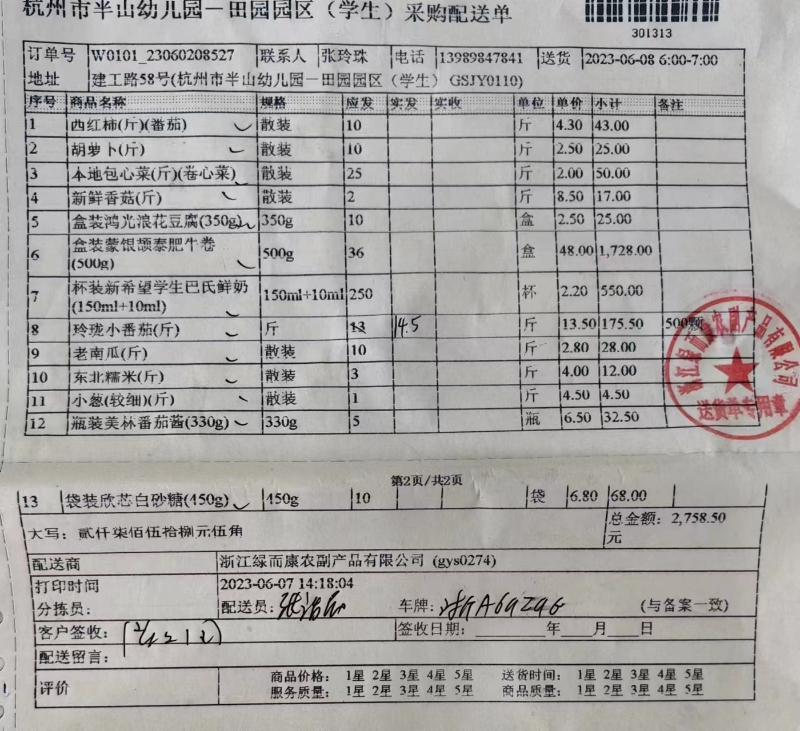 杭州市半山幼儿园－田园园区（学生）采购配送单
301313
订单号 W0101_23060208527 联系人 张玲珠 电话 13989847841 送货 2023-06-08 6:00-7:00
地址 建工路58号(杭州市半山幼儿园－田园园区（学生）GSJY0110)
序号 商品名称 规格 应发 实发 实收 单位 单价 小计 备注
1 西红柿(斤)(番茄) 散装 10 斤 4.30 43.00
2 胡萝卜(斤) 散装 10 斤 2.50 25.00
3 本地包心菜(斤)(卷心菜) 散装 25 斤 2.00 50.00
4 新鲜香菇(斤) 散装 2 斤 8.50 17.00
5 盒装鸿光浪花豆腐(350g) 350g 10 盒 2.50 25.00
6 盒装蒙银颉泰肥牛卷(500g) 500g 36 盒 48.00 1,728.00
7 杯装新希望学生巴氏鲜奶(150ml+10ml) 150ml+10ml 250 杯 2.20 550.00
8 玲珑小番茄(斤) 斤 13 14.5 斤 13.50 175.50 500颗
9 老南瓜(斤) 散装 10 斤 2.80 28.00
10 东北糯米(斤) 散装 3 斤 4.00 12.00
11 小葱(较细)(斤) 散装 1 斤 4.50 4.50
12 瓶装美林番茄酱(330g) 330g 5 瓶 6.50 32.50
浙江绿而康农副产品有限公司
送货单专用章
第2页/共2页
13 袋装欣芯白砂糖(450g) 450g 10 袋 6.80 68.00
大写：贰仟柒佰伍拾捌元伍角 总金额：2,758.50元
配送商 浙江绿而康农副产品有限公司 (gys0274)
打印时间 2023-06-07 14:18:04
分拣员： 配送员： 车牌： (与备案一致)
客户签收： 签收日期：________年____月____日
配送留言：
评价 商品价格： 1星 2星 3星 4星 5星 送货时间： 1星 2星 3星 4星 5星
服务质量： 1星 2星 3星 4星 5星 商品质量： 1星 2星 3星 4星 5星